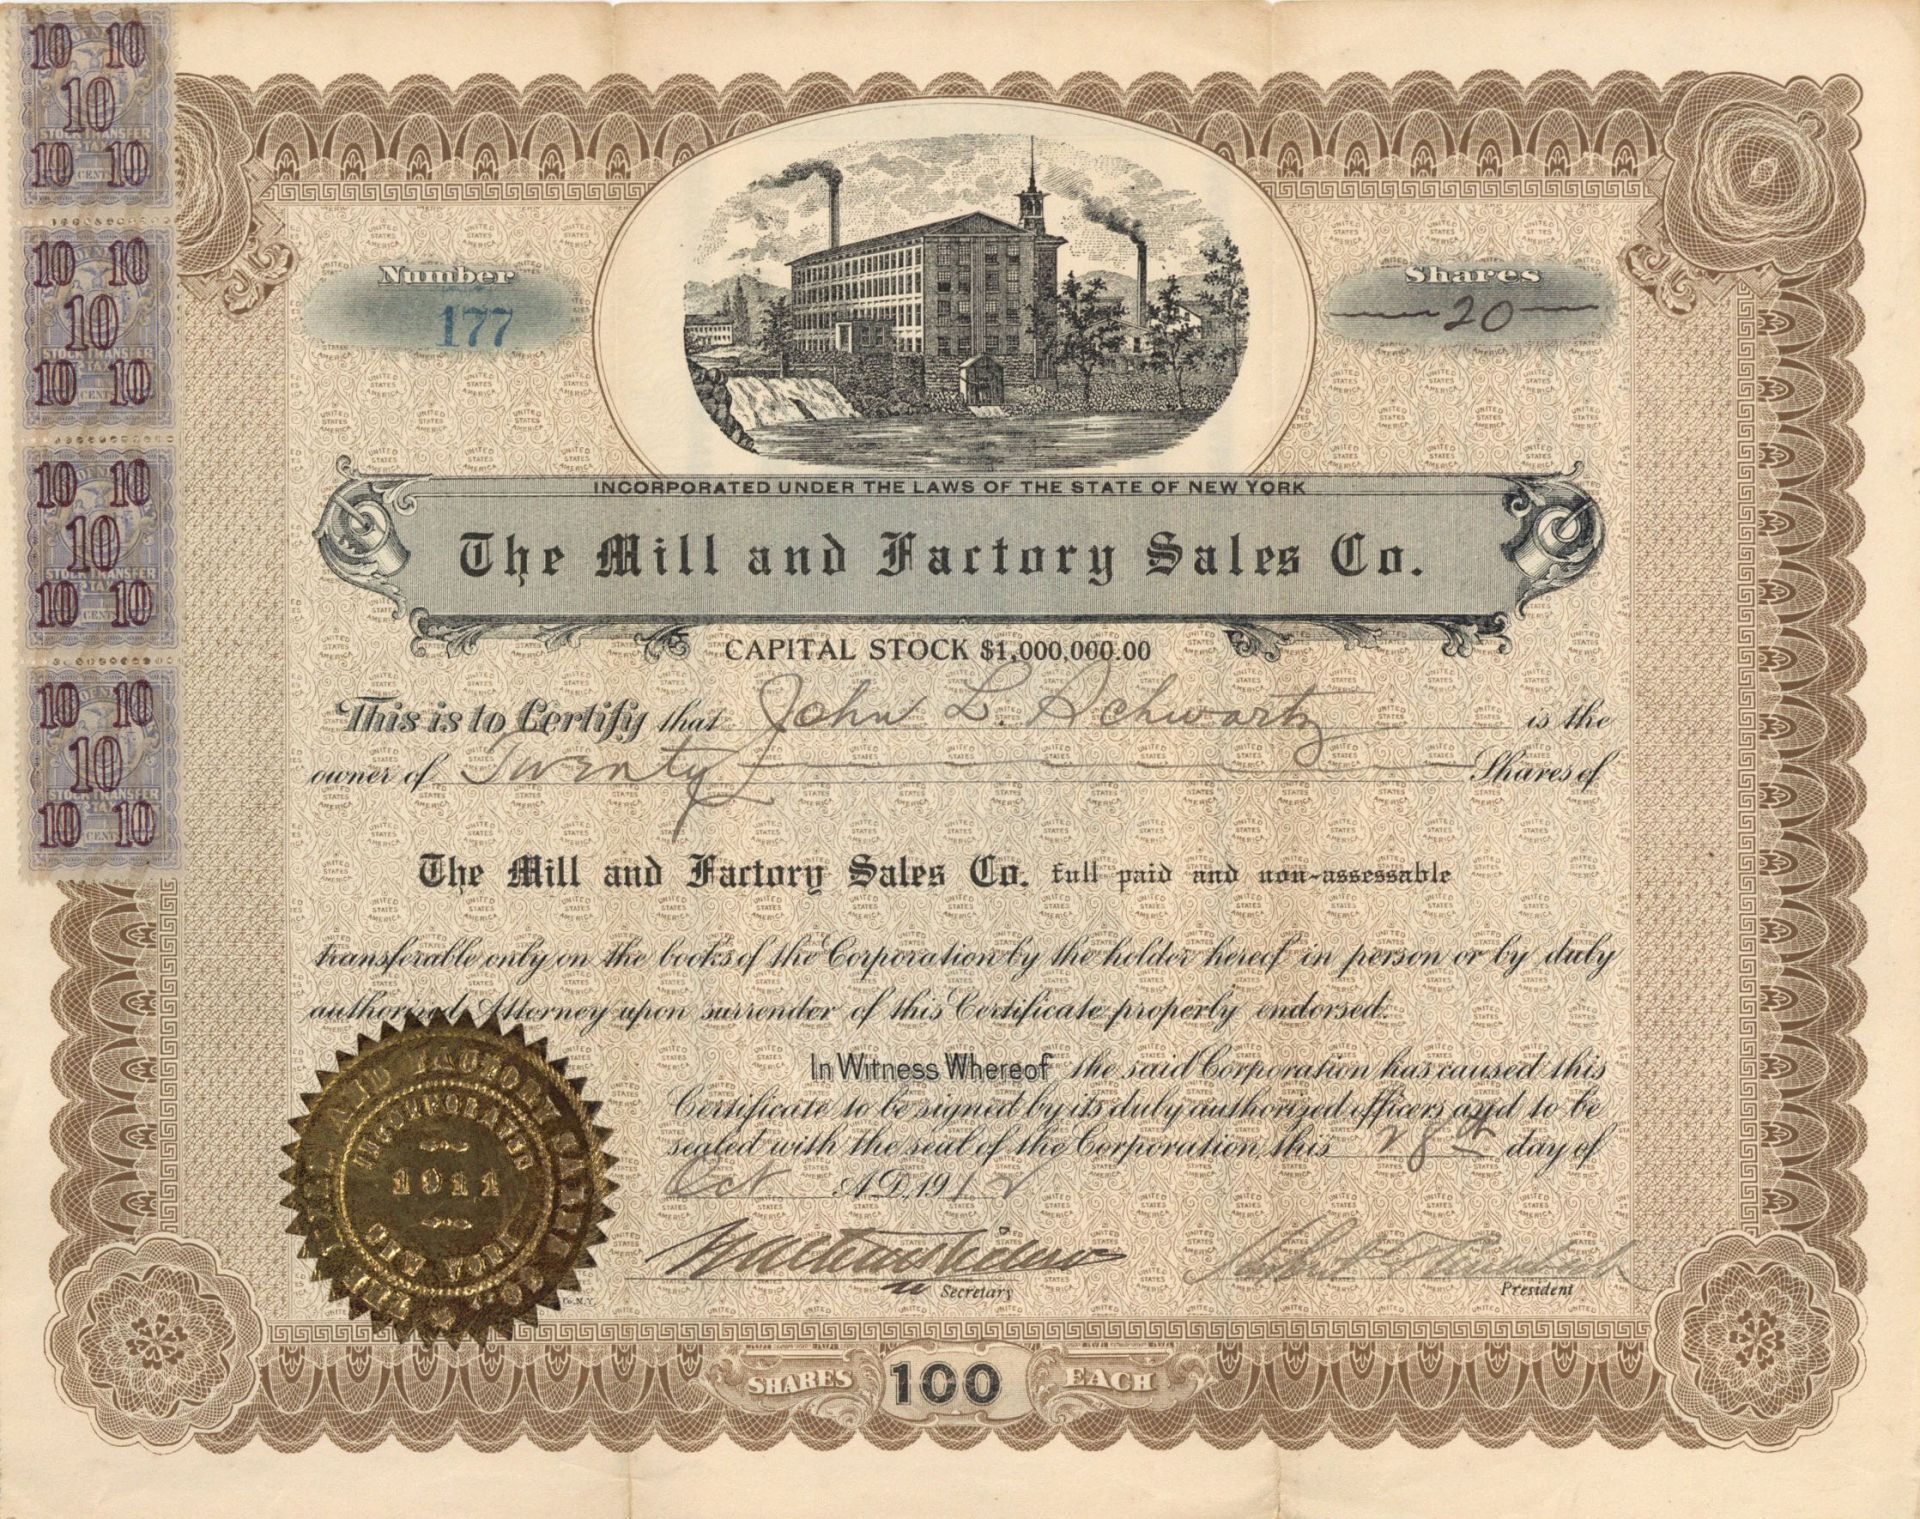 10 10
10
STOCK TRANSFER
TAX
10 CENTS 10
10 10
10
STOCK TRANSFER
TAX
10 CENTS 10
10 10
10
STOCK TRANSFER
TAX
10 CENTS 10
10 10
10
STOCK TRANSFER
TAX
10 CENTS 10
Number
177
Shares
20
INCORPORATED UNDER THE LAWS OF THE STATE OF NEW YORK
The Mill and Factory Sales Co.
CAPITAL STOCK $1,000,000.00
This is to Certify that John L. Schwartz is the
owner of Twenty Shares of
The Mill and Factory Sales Co. full paid and non-assessable
transferable only on the books of the Corporation by the holder hereof in person or by duly
authorized Attorney upon surrender of this Certificate properly endorsed.
In Witness Whereof the said Corporation has caused this
Certificate to be signed by its duly authorized officers and to be
sealed with the seal of the Corporation, this 28th day of
Oct A.D. 1912
Secretary
President
THE MILL AND FACTORY SALES CO.
INCORPORATED
1911
NEW YORK
Co. N.Y.
SHARES 100 EACH